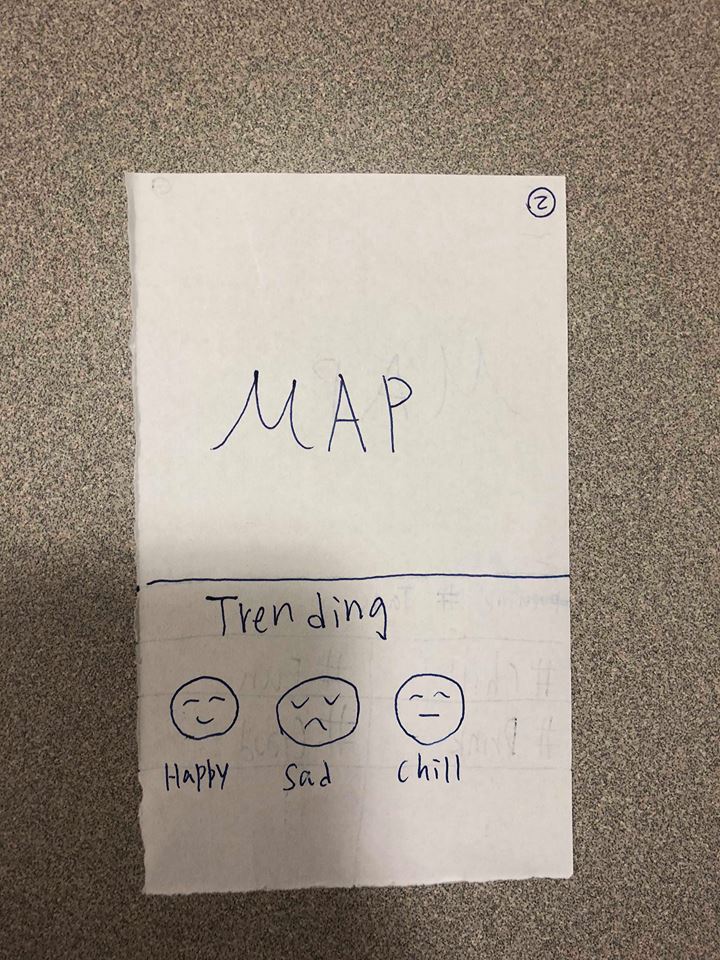 2
MAP
Trending
Happy sad chill